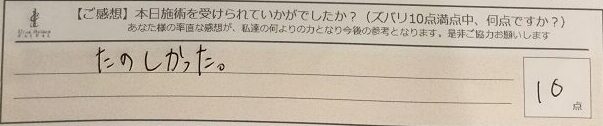 【ご感想】本日施術を受けられていかがでしたか？（ズバリ10点満点中、何点ですか？）
あなた様の率直な感想が、私達の何よりの力となり今後の参考となります。是非ご協力お願いします
たのしかった。
10
点